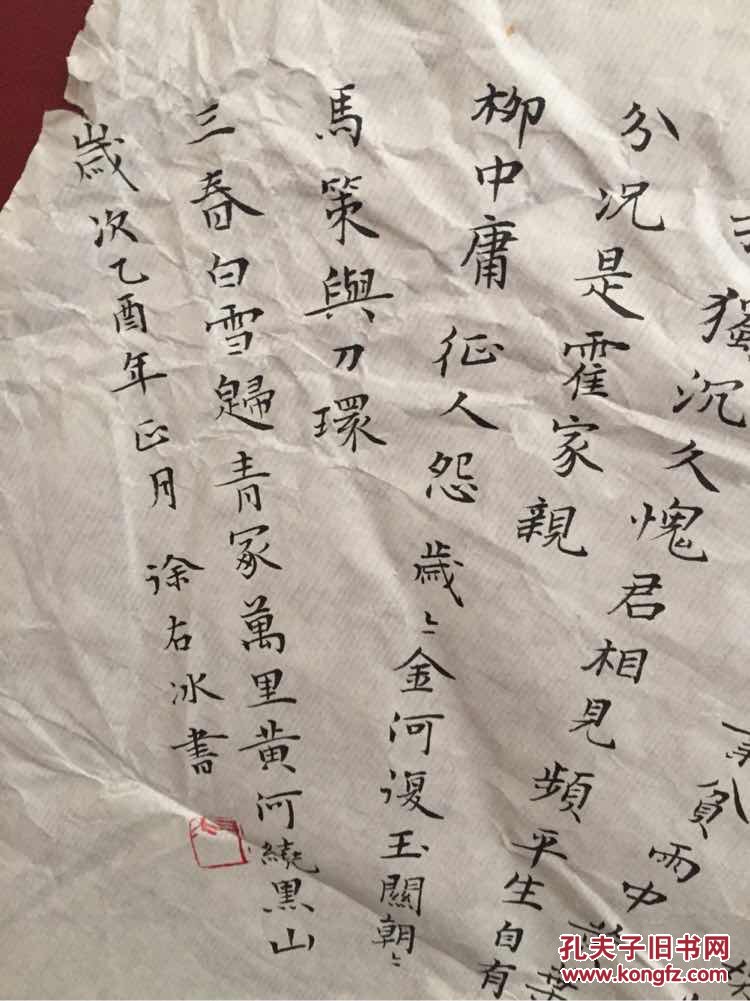 貧雨中
獨沉久愧君相見頻平生自有
分況是霍家親
柳中庸 征人怨 歲〻金河復玉關朝〻
馬策與刀環
三春白雪歸青冢萬里黃河繞黑山
歲次乙酉年正月 徐右冰書
孔夫子旧书网
www.kongfz.com